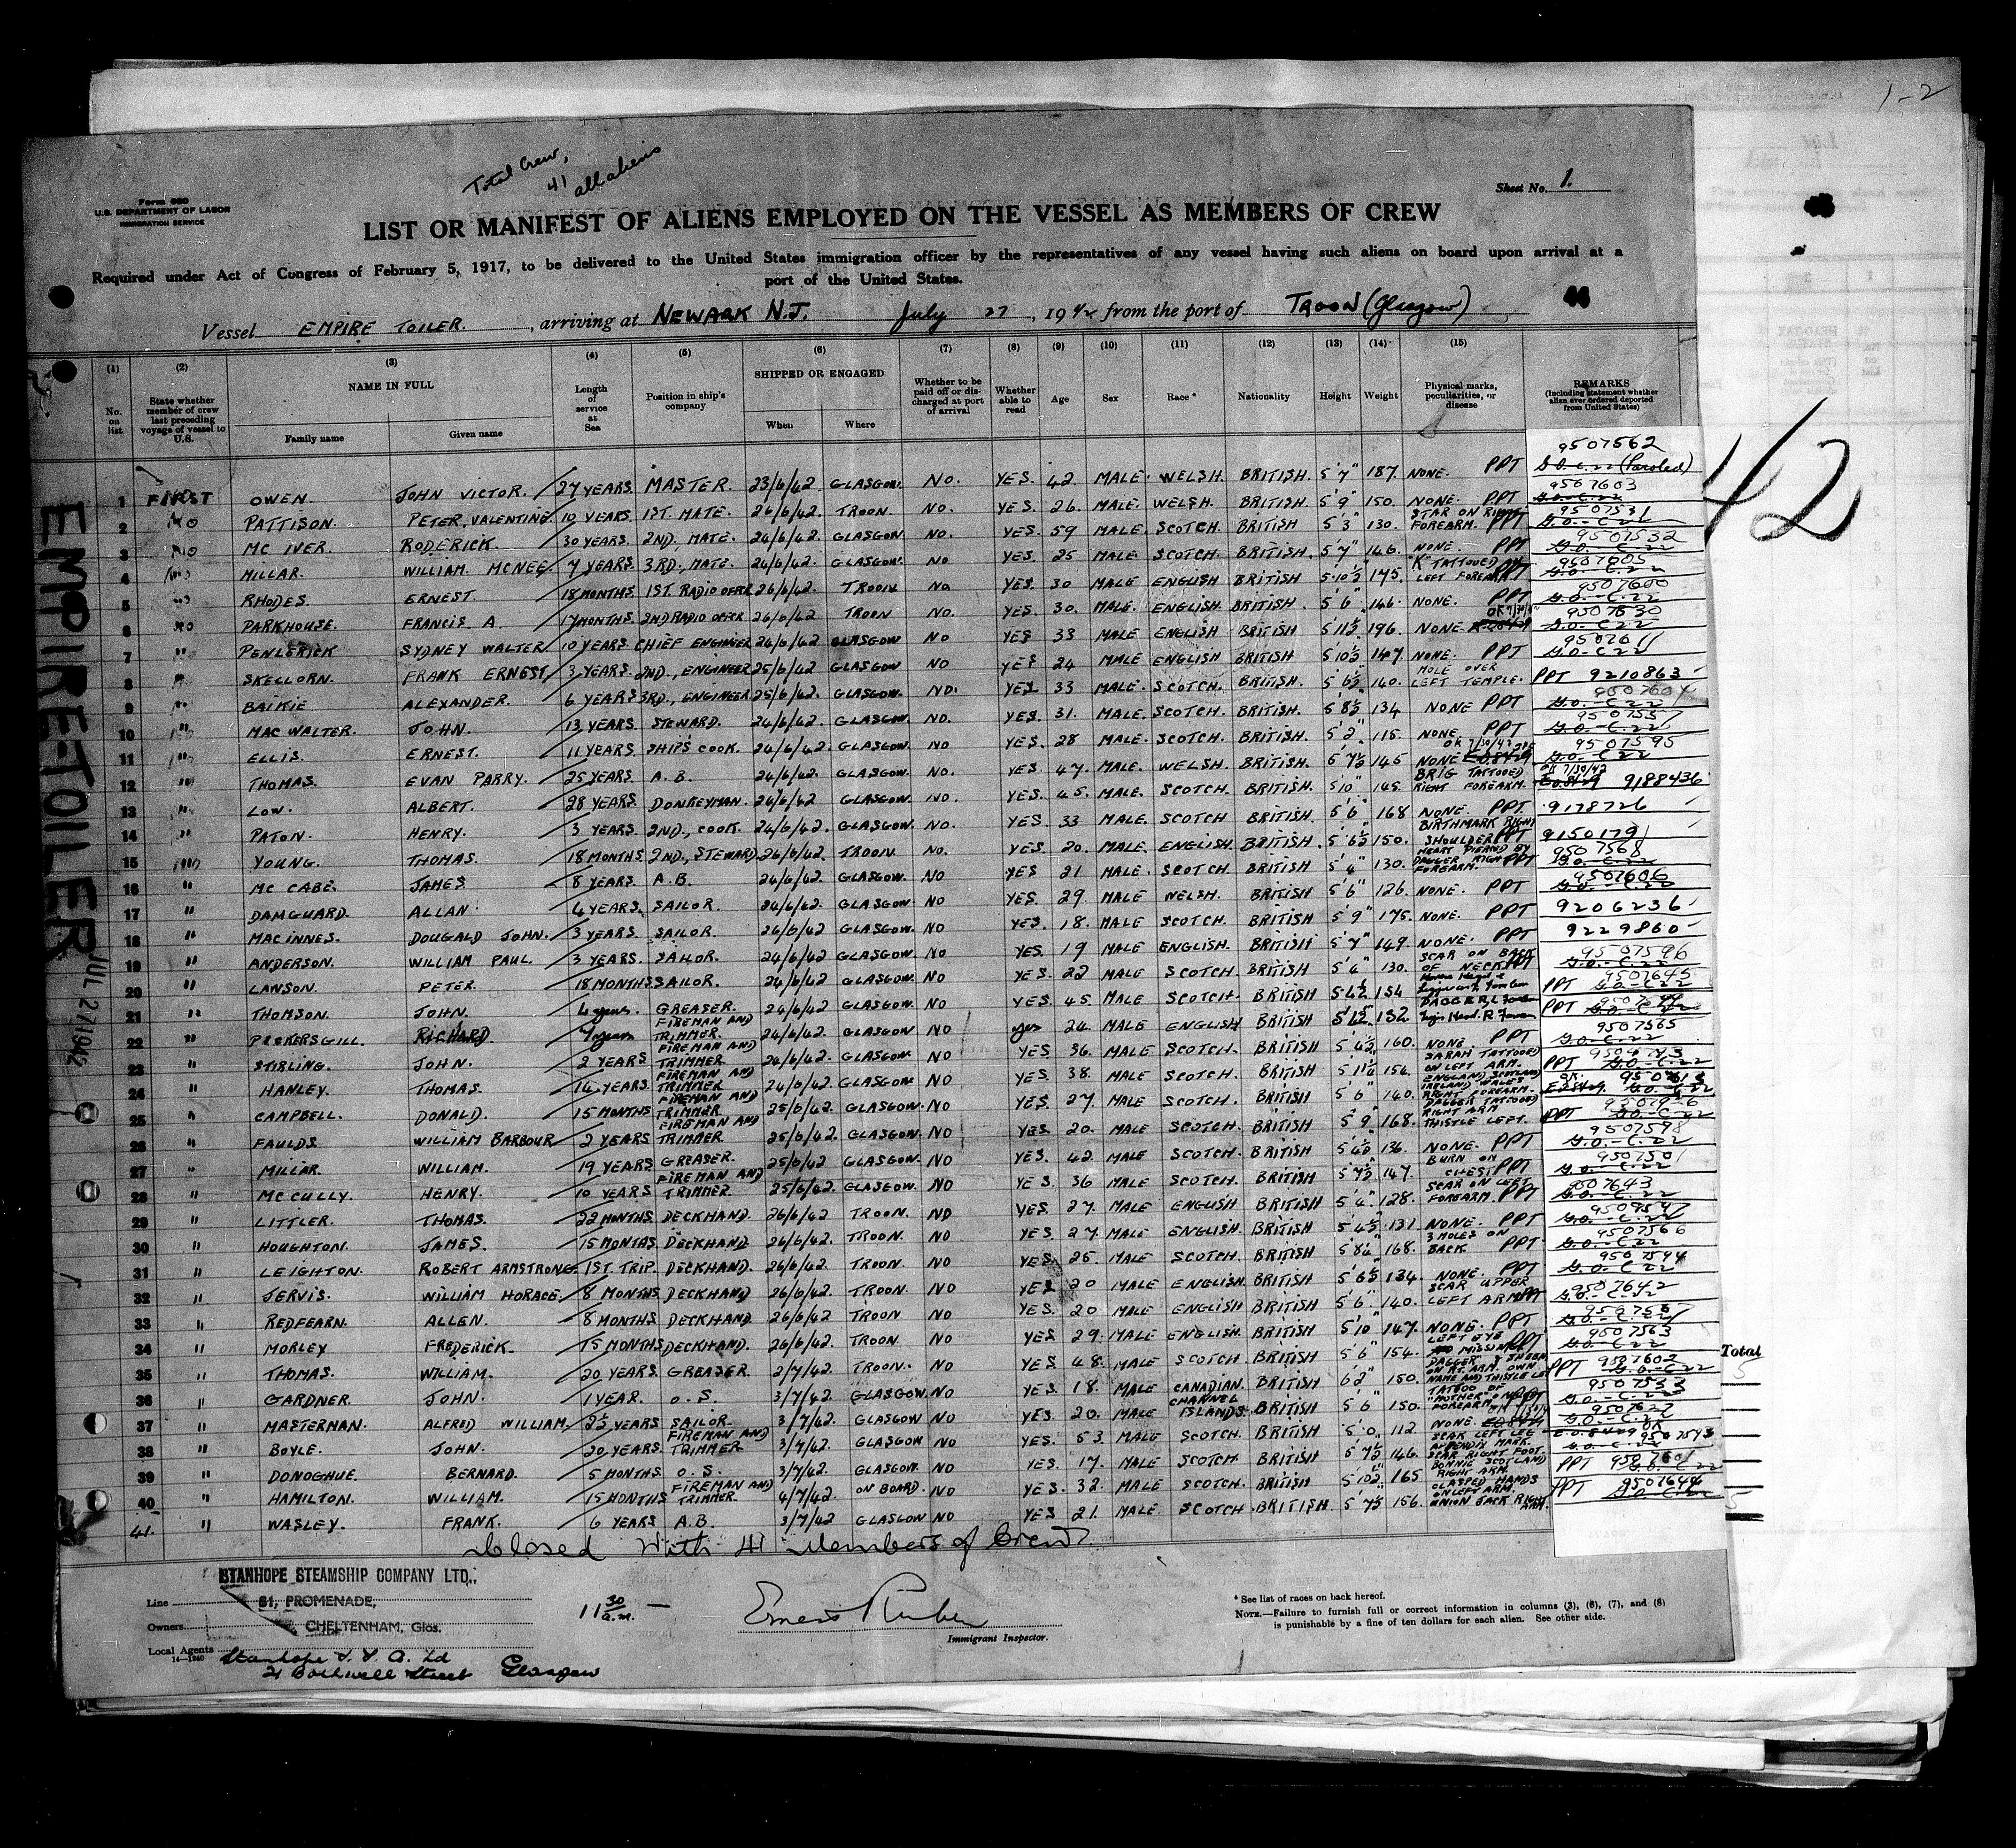 1-2
Total Crew,
41 all aliens
Form 680
U.S. DEPARTMENT OF LABOR
IMMIGRATION SERVICE
Sheet No. 1.
LIST OR MANIFEST OF ALIENS EMPLOYED ON THE VESSEL AS MEMBERS OF CREW
Required under Act of Congress of February 5, 1917, to be delivered to the United States immigration officer by the representatives of any vessel having such aliens on board upon arrival at a
port of the United States.
Vessel EMPIRE TOILER. , arriving at NEWARK N.J. July 27, 1942 from the port of TROON (Glasgow)
(1) (2) (3) (4) (5) (6) (7) (8) (9) (10) (11) (12) (13) (14) (15)
No. on list
State whether member of crew last preceding voyage of vessel to U.S.
NAME IN FULL
Family name
Given name
Length of service at Sea
Position in ship's company
SHIPPED OR ENGAGED
When
Where
Whether to be paid off or discharged at port of arrival
Whether able to read
Age
Sex
Race *
Nationality
Height
Weight
Physical marks, peculiarities, or disease
REMARKS
(Including statement whether alien ever ordered deported from United States)
42
1 FIRST OWEN. JOHN VICTOR. 27 YEARS. MASTER. 23/6/42 GLASGOW. NO. YES. 42. MALE. WELSH. BRITISH. 5'7" 187. NONE. PPT 9507562 G.O.-C.22 (Paroled)
2 NO PATTISON. PETER VALENTINE. 10 YEARS. 1ST. MATE. 26/6/42. TROON. NO. YES. 26. MALE. WELSH. BRITISH. 5'9" 150. NONE. PPT 9507603 G.O.-C.22
3 NO MC IVER. RODERICK. 30 YEARS. 2ND. MATE. 24/6/42. GLASGOW. NO. YES. 59 MALE. SCOTCH. BRITISH 5'3" 130. STAR ON RIGHT FOREARM. PPT 9507531 G.O.-C.22
4 MILLAR. WILLIAM. MCNEE 7 YEARS. 3RD. MATE. 24/6/42. GLASGOW. NO. YES. 25 MALE. SCOTCH. BRITISH. 5'7" 146. NONE. PPT 9507532 G.O.-C.22
5 RHODES. ERNEST. 18 MONTHS. 1ST. RADIO OFFCR 26/6/42 TROON NO YES. 30 MALE ENGLISH BRITISH 5'10½ 175. "K" TATTOOED LEFT FOREARM PPT 9507605 G.O.-C.22
6 NO PARKHOUSE. FRANCIS A. 17 MONTHS. 2ND RADIO OFFCR 26/6/42 TROON NO. YES. 30. MALE. ENGLISH. BRITISH. 5'6" 146. NONE. PPT 9507600 G.O.-C.22
7 " PENLERICK SYDNEY WALTER 10 YEARS. CHIEF ENGINEER 24/6/42 GLASGOW NO YES 33 MALE ENGLISH BRITISH 5'11½ 196. NONE 9507530 G.O.-C.22
8 " SKELLORN. FRANK ERNEST. 3 YEARS. 2ND., ENGINEER 25/6/42 GLASGOW NO YES 24 MALE ENGLISH BRITISH 5'10½ 147. NONE. PPT G.O.-C.22
9 " BAIKIE ALEXANDER. 6 YEARS 3RD., ENGINEER 25/6/42 GLASGOW. NO. YES 33 MALE. SCOTCH. BRITISH. 5'6½ 140. MOLE OVER LEFT TEMPLE. PPT 9210863
10 " MACWALTER. JOHN. 13 YEARS. STEWARD. 24/6/42 GLASGOW. NO. YES. 31. MALE. SCOTCH. BRITISH. 5'8½ 134 NONE PPT 9507604 G.O.-C.22
11 " ELLIS. ERNEST. 11 YEARS. SHIP'S COOK. 24/6/42. GLASGOW. NO YES. 28 MALE. SCOTCH. BRITISH. 5'2" 115. NONE. PPT G.O.-C.22
12 " THOMAS. EVAN PARRY. 25 YEARS. A.B. 24/6/42. GLASGOW. NO. YES. 47. MALE. WELSH. BRITISH. 5'7½ 145 NONE OK 7/30/42 9507595 G.O.-C.22
13 " LOW. ALBERT. 28 YEARS. DONKEYMAN. 24/6/42 GLASGOW. NO. YES. 45. MALE. SCOTCH. BRITISH. 5'10" 145. BRIG TATTOOED RIGHT FOREARM. OK 7/30/42 9188436
14 " PATON. HENRY. 3 YEARS. 2ND., COOK. 24/6/42. GLASGOW. NO. YES. 33 MALE SCOTCH BRITISH. 5'6" 168 NONE. PPT 9178726
15 " YOUNG. THOMAS. 18 MONTHS. 2ND., STEWARD. 26/6/42. TROON. NO. YES. 20. MALE. ENGLISH. BRITISH. 5'6½ 150. BIRTHMARK RIGHT SHOULDER PPT 9150179
16 " MC CABE. JAMES 8 YEARS. A.B. 24/6/42. GLASGOW. NO YES 21 MALE. SCOTCH BRITISH 5'4" 130. HEART PIERCED BY DAGGER RIGHT FOREARM. PPT 9507568 G.O.-C.22
17 " DAMGUARD. ALLAN. 4 YEARS. SAILOR. 24/6/42. GLASGOW. NO YES. 29. MALE WELSH. BRITISH 5'6" 126. NONE. PPT 9507606 G.O.-C.22
18 " MACINNES. DOUGALD JOHN. 3 YEARS. SAILOR. 26/6/42 GLASGOW. NO YES. 18. MALE SCOTCH. BRITISH 5'9" 175. NONE. PPT 9206236
19 " ANDERSON. WILLIAM PAUL. 3 YEARS. SAILOR. 24/6/42 GLASGOW. NO YES. 19 MALE ENGLISH. BRITISH 5'7" 149. NONE. PPT 9229860
20 " LAWSON. PETER. 18 MONTHS SAILOR. 24/6/42 GLASGOW. NO YES. 22 MALE SCOTCH BRITISH 5'4" 130. SCAR ON BACK OF NECK PPT 9507596 G.O.-C.22
21 " THOMSON. JOHN. 4 years. GREASER. 24/6/42 GLASGOW. NO YES. 45. MALE SCOTCH. BRITISH 5'4½ 134 PPT 9507645 G.O.-C.22
22 " PICKERSGILL. RICHARD. 7 years FIREMAN AND TRIMMER. 24/6/42 GLASGOW NO yes 24. MALE ENGLISH BRITISH 132. PPT G.O.-C.22
23 " STIRLING. JOHN. 2 YEARS FIREMAN AND TRIMMER 24/6/42 GLASGOW NO YES. 36. MALE SCOTCH. BRITISH 5'4½ 160. NONE. PPT 9507565 G.O.-C.22
24 " HANLEY. THOMAS. 14 YEARS. FIREMAN AND TRIMMER 24/6/42 GLASGOW NO YES. 38. MALE SCOTCH. BRITISH 5'1½ 154. SARAH TATTOOED ON LEFT ARM. PPT G.O.-C.22
25 " CAMPBELL. DONALD. 15 MONTHS FIREMAN AND TRIMMER 25/6/42 GLASGOW. NO YES. 27. MALE SCOTCH. BRITISH 5'6" 140. ENGLAND SCOTLAND IRELAND WALES RIGHT FOREARM. OK G.O.-C.22
26 " FAULDS. WILLIAM BARBOUR 2 YEARS FIREMAN AND TRIMMER 25/6/42. GLASGOW. NO YES. 20. MALE SCOTCH. BRITISH 5'9" 168. DAGGER TATTOOED RIGHT ARM THISTLE LEFT. PPT G.O.-C.22
27 " MILLAR. WILLIAM. 19 YEARS GREASER. 25/6/42 GLASGOW. NO YES. 42. MALE SCOTCH. BRITISH 5'4½ 136. NONE. PPT 9507598 G.O.-C.22
28 " MC CULLY. HENRY. 10 YEARS FIREMAN AND TRIMMER 25/6/42 GLASGOW. NO YES. 36 MALE SCOTCH. BRITISH 5'7½ 147 BURN ON CHEST PPT 9507501 G.O.-C.22
29 " LITTLER. THOMAS. 22 MONTHS. DECKHAND. 26/6/42 TROON. NO YES. 27. MALE ENGLISH BRITISH 5'4" 128. SCAR ON LEFT FOREARM. PPT 9507643 G.O.-C.22
30 " HOUGHTON. JAMES. 15 MONTHS. DECKHAND. 26/6/42 TROON. NO YES. 27. MALE ENGLISH. BRITISH 5'4½ 131. NONE. PPT G.O.-C.22
31 " LEIGHTON. ROBERT ARMSTRONG. 1ST. TRIP. DECKHAND. 26/6/42. TROON. NO YES. 25. MALE SCOTCH. BRITISH 168. 3 MOLES ON BACK PPT 9507566 G.O.-C.22
32 " JERVIS. WILLIAM HORACE. 8 MONTHS DECKHAND 26/6/42 TROON. NO YES 20 MALE ENGLISH BRITISH 5'6½ 134. NONE. PPT 9507594 G.O.-C.22
33 " REDFEARN. ALLEN. 8 MONTHS DECKHAND. 26/6/42 TROON NO YES. 20 MALE ENGLISH BRITISH 5'6" 140. SCAR UPPER LEFT ARM PPT 9507642 G.O.-C.22
34 " MORLEY FREDERICK. 15 MONTHS DECKHAND. 26/6/42 TROON. NO YES. 29. MALE ENGLISH. BRITISH 5'10" 147. NONE. PPT G.O.-C.22
35 " THOMAS. WILLIAM. 20 YEARS. GREASER 2/7/42. TROON. NO YES. 48. MALE SCOTCH BRITISH 5'6" 154. LEFT EYE MISSING PPT 9507563 G.O.-C.22
36 " GARDNER. JOHN. 1 YEAR. O.S. 3/7/42. GLASGOW. NO YES. 18. MALE CANADIAN. BRITISH 6'2" 150. DAGGER ON RT. ARM. OWN NAME AND THISTLE PPT 9507602 G.O.-C.22
37 " MASTERMAN. ALFRED WILLIAM. 2½ YEARS SAILOR. 3/7/42. GLASGOW NO YES. 20. MALE CHANNEL ISLANDS. BRITISH 5'6" 150. TATTOO OF "MOTHER" ON FOREARM PPT 9507533 G.O.-C.22
38 " BOYLE. JOHN. 20 YEARS. FIREMAN AND TRIMMER 3/7/42. GLASGOW NO YES. 53. MALE SCOTCH. BRITISH 5'0" 112 NONE. 9507627 G.O.-C.22
39 " DONOGHUE. BERNARD. 5 MONTHS. O.S. 3/7/42. GLASGOW. NO YES. 17. MALE SCOTCH BRITISH 5'7½ 146. SCAR LEFT LEG APPENDIX MARK. SCAR RIGHT FOOT. OK 9507543 G.O.-C.22
40 " HAMILTON. WILLIAM. 15 MONTHS FIREMAN AND TRIMMER. 4/7/42. ON BOARD. NO YES. 32. MALE SCOTCH. BRITISH 5'10½ 165 BONNIE SCOTLAND RIGHT ARM. PPT G.O.-C.22
41. " WASLEY. FRANK. 6 YEARS A.B. 3/7/42 GLASGOW NO YES 21. MALE SCOTCH BRITISH. 5'7½ 156. CLASPED HANDS ON LEFT ARM. UNION JACK RIGHT ARM. PPT 9507644 G.O.-C.22
Total
5
5
EMPIRE-TOILER JUL 27 1942
Closed with 41 Members of Crew.
STANHOPE STEAMSHIP COMPANY LTD.,
Line 51, PROMENADE,
Owners CHELTENHAM, Glos.
Local Agents
14—1940
Glasgow
11 30 a.m.
Immigrant Inspector.
* See list of races on back hereof.
NOTE.—Failure to furnish full or correct information in columns (3), (6), (7), and (8)
is punishable by a fine of ten dollars for each alien. See other side.